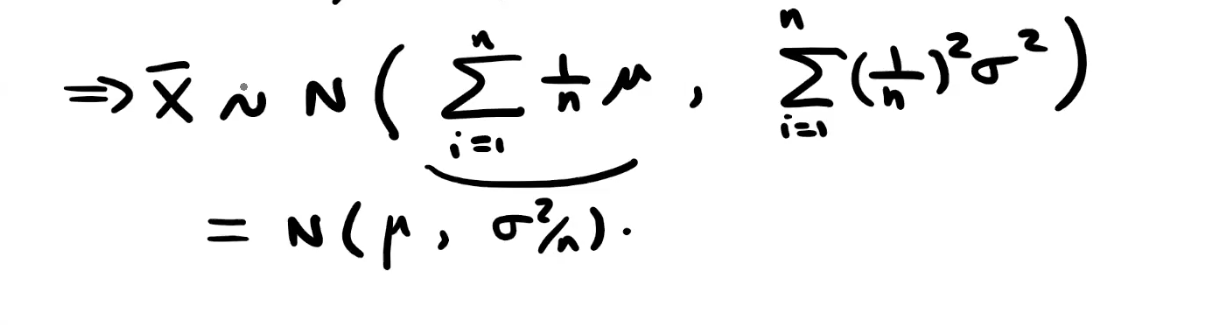 ⇒ X̄ ∼ N( ∑_{i=1}^{n} 1/n μ , ∑_{i=1}^{n} (1/n)² σ² )
= N(μ, σ²/n).